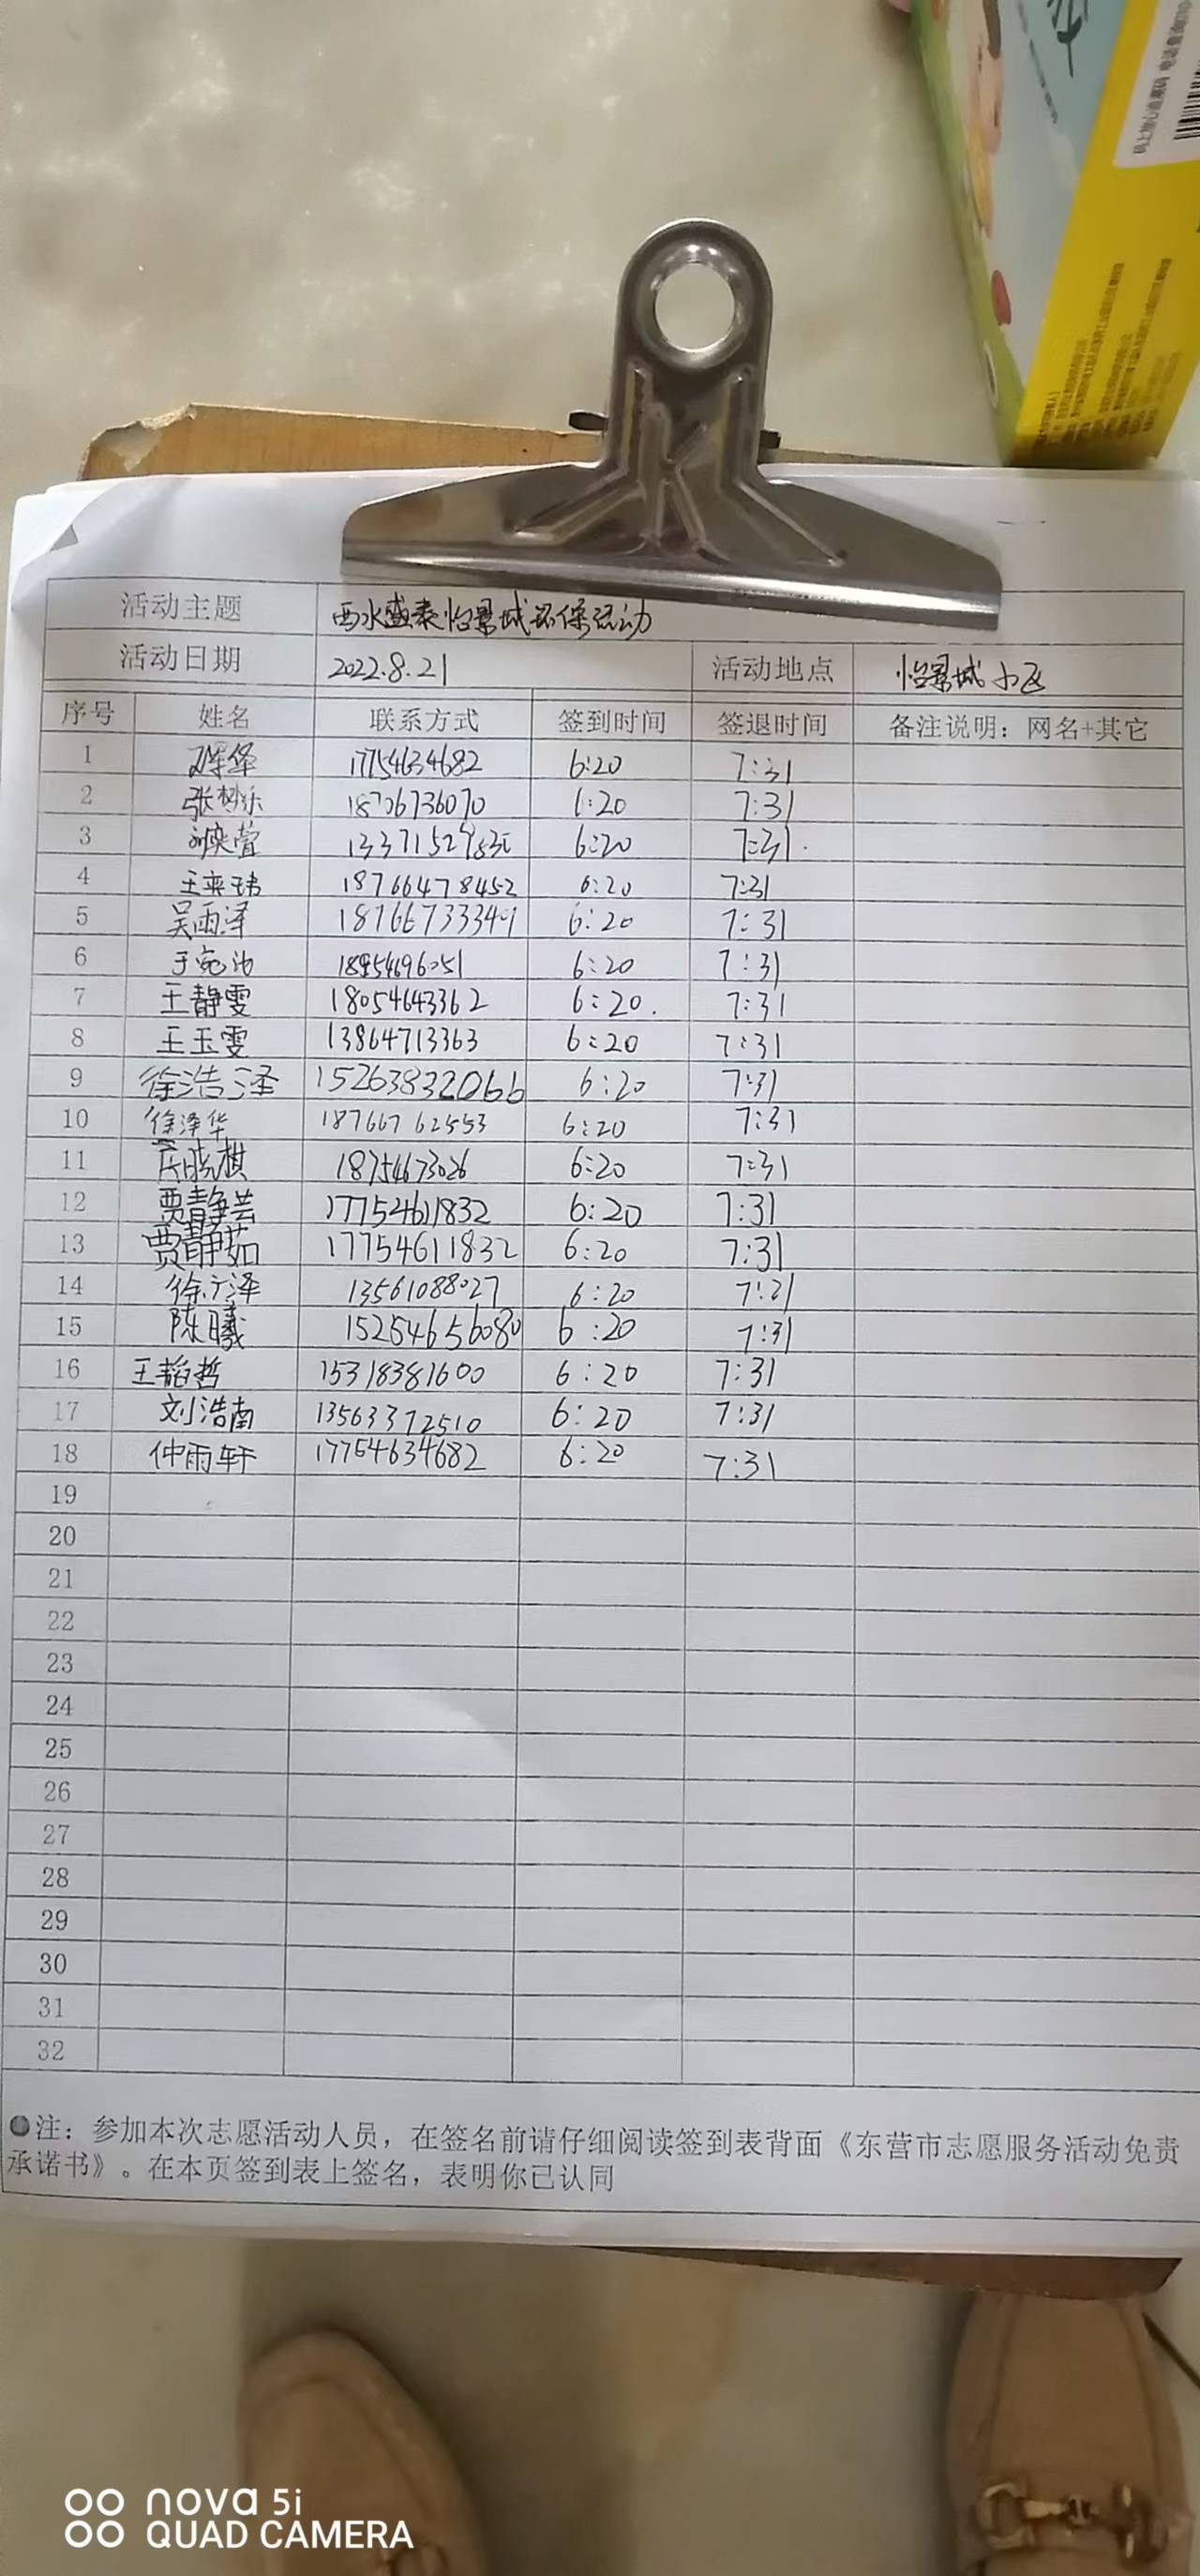 活动主题 西水盛泰怡景城环保活动
活动日期 2022.8.21 活动地点 怡景城小区
序号 姓名 联系方式 签到时间 签退时间 备注说明：网名+其它
1 17754634682 6:20 7:31
2 张梦乐 18706736070 6:20 7:31
3 6:20 7:31
4 王奕玮 18766478452 6:20 7:31
5 吴雨泽 6:20 7:31
6 于宛池 18954696051 6:20 7:31
7 王静雯 18054643362 6:20 7:31
8 王玉雯 13864713363 6:20 7:31
9 徐浩泽 15263832066 6:20 7:31
10 徐泽华 18766762553 6:20 7:31
11 18754673026 6:20 7:31
12 贾静芸 17754611832 6:20 7:31
13 贾静茹 17754611832 6:20 7:31
14 徐广泽 13561088027 6:20 7:31
15 陈曦 15254656080 6:20 7:31
16 王韬哲 15318381600 6:20 7:31
17 刘浩南 13563372510 6:20 7:31
18 仲雨轩 17754634682 6:20 7:31
19
20
21
22
23
24
25
26
27
28
29
30
31
32
注：参加本次志愿活动人员，在签名前请仔细阅读签到表背面《东营市志愿服务活动免责
承诺书》。在本页签到表上签名，表明你已认同
nova 5i
QUAD CAMERA